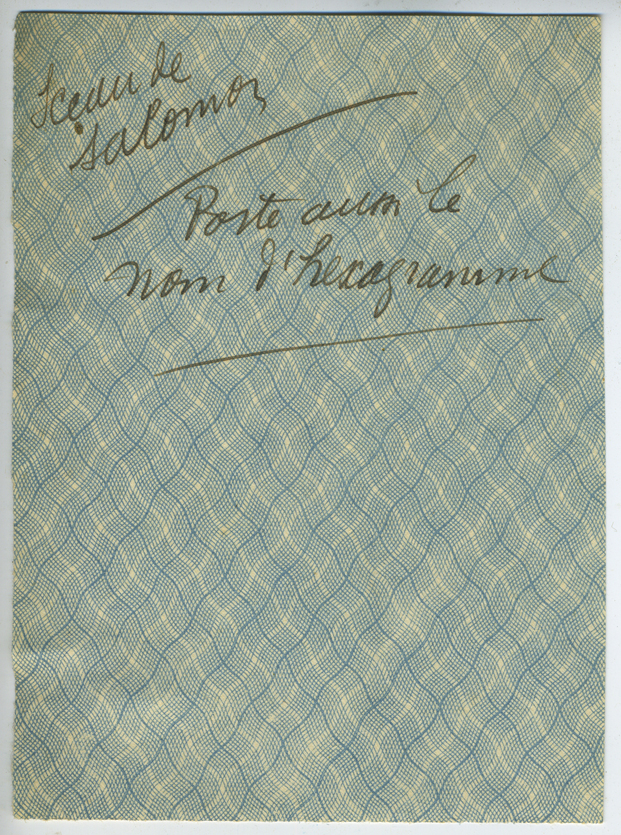 Sceau de
Salomon
Porte aussi le
nom d'hexagramme